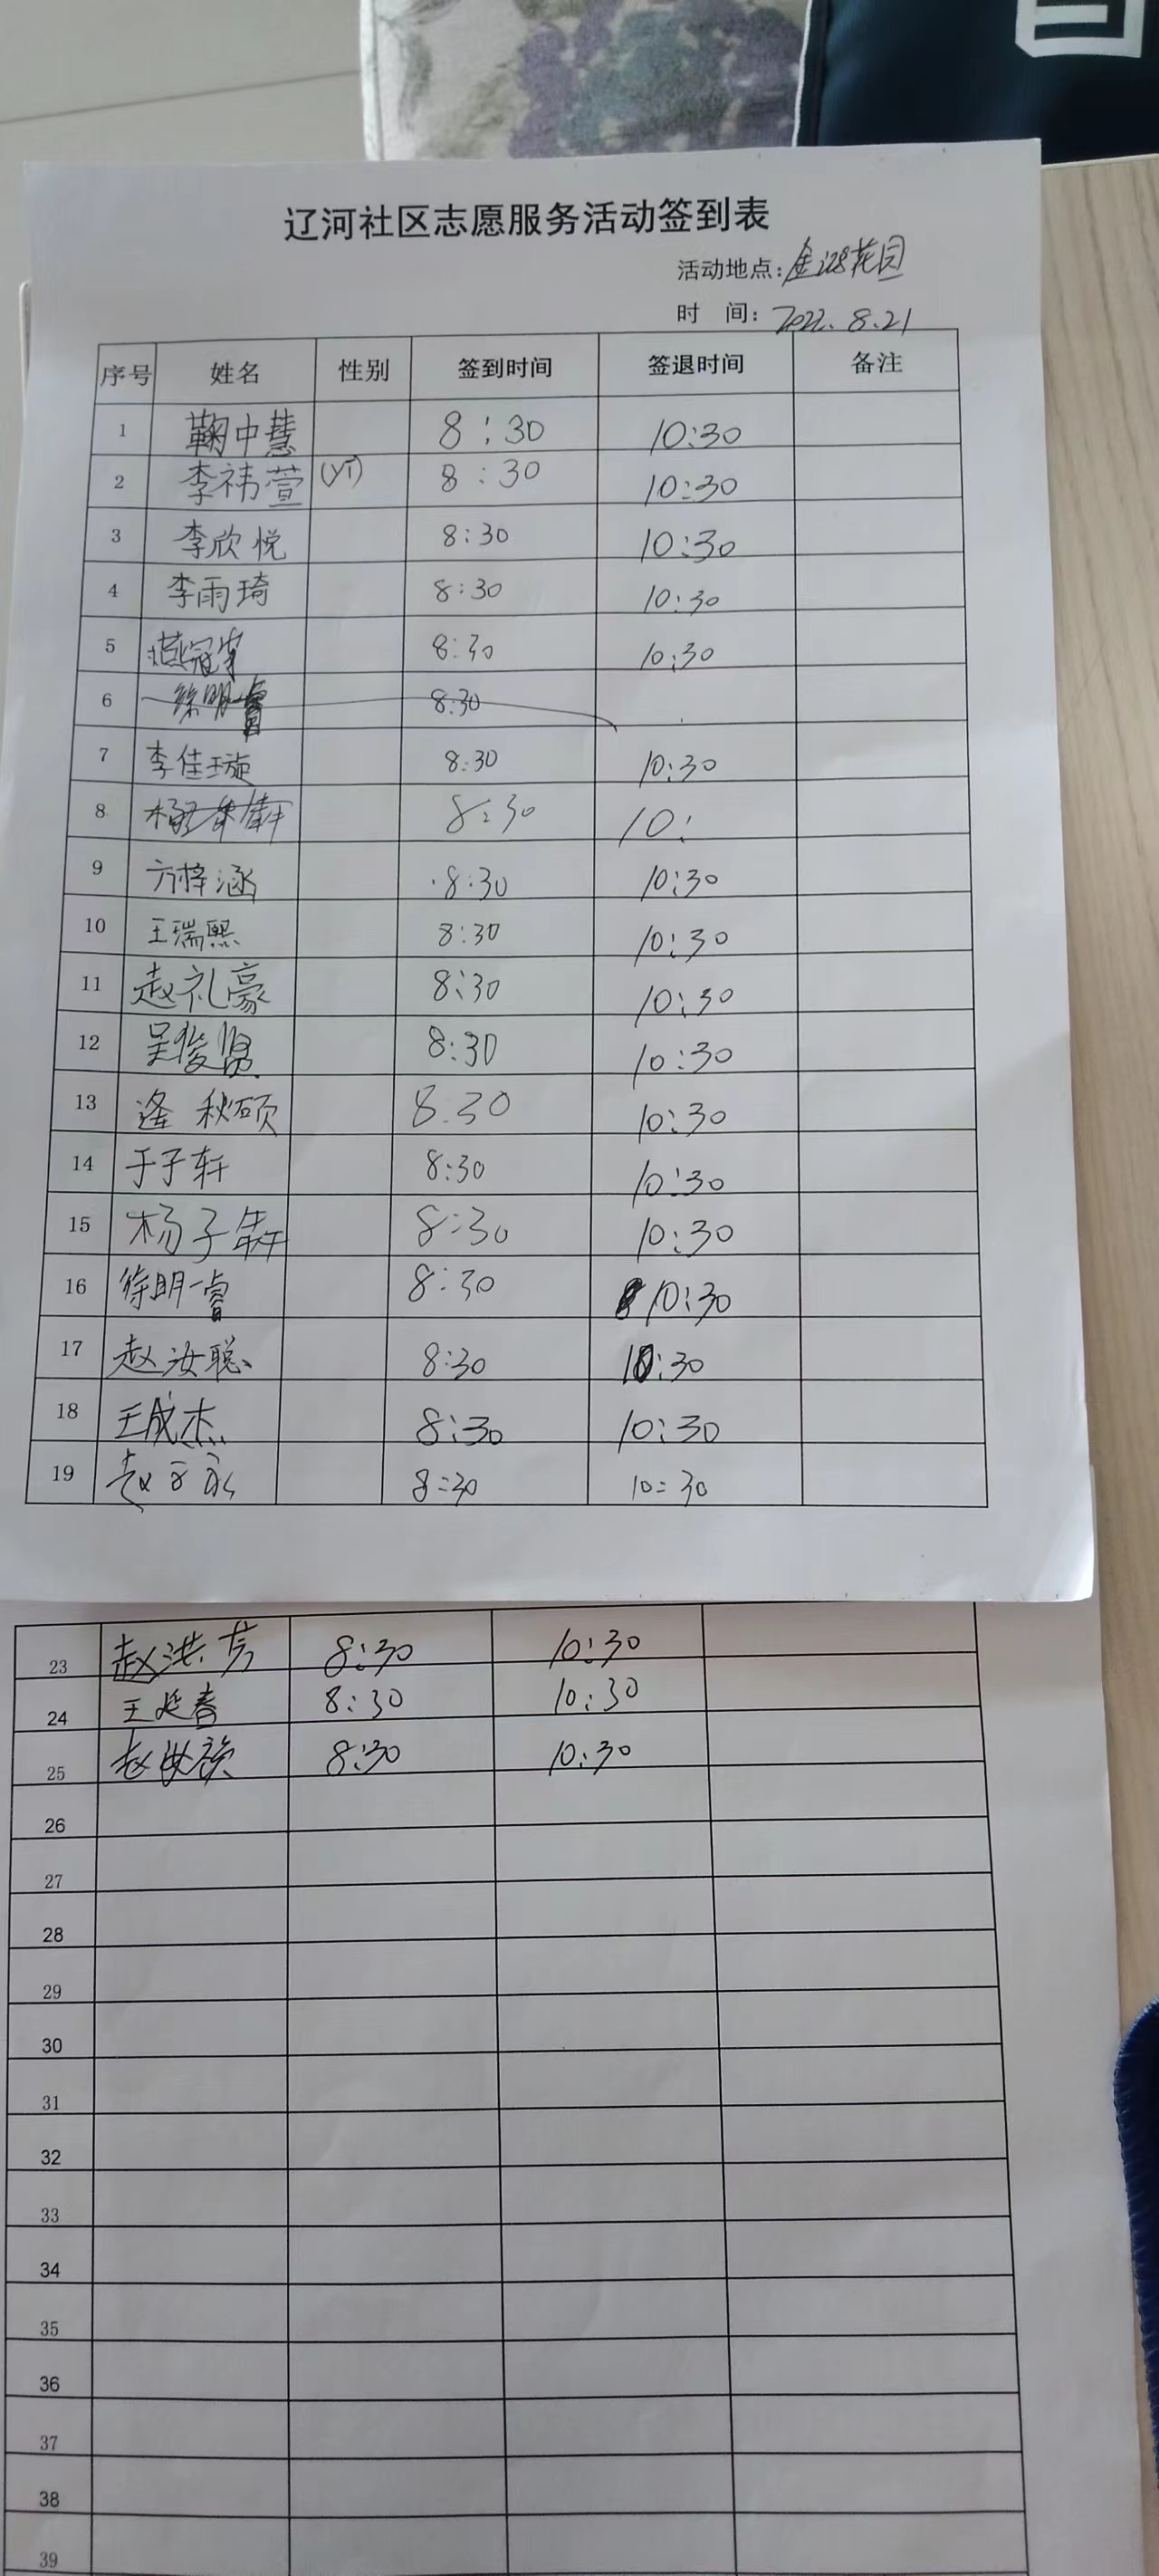 辽河社区志愿服务活动签到表
活动地点: 花园
时 间: 2022.8.21
序号 姓名 性别 签到时间 签退时间 备注
1 鞠中慧 8:30 10:30
2 李祎萱 (yī) 8:30 10:30
3 李欣悦 8:30 10:30
4 李雨琦 8:30 10:30
5 8:30 10:30
6 徐明睿 8:30
7 李佳璇 8:30 10:30
8 8:30 10:
9 方梓涵 8:30 10:30
10 王瑞熙 8:30 10:30
11 赵礼豪 8:30 10:30
12 吴俊贤 8:30 10:30
13 逄秋硕 8:30 10:30
14 于子轩 8:30 10:30
15 杨子犇 8:30 10:30
16 徐明睿 8:30 10:30
17 赵汝聪 8:30 10:30
18 王成杰 8:30 10:30
19 赵 8:30 10:30
23 赵洪芳 8:30 10:30
24 王延春 8:30 10:30
25 赵 8:30 10:30
26
27
28
29
30
31
32
33
34
35
36
37
38
39